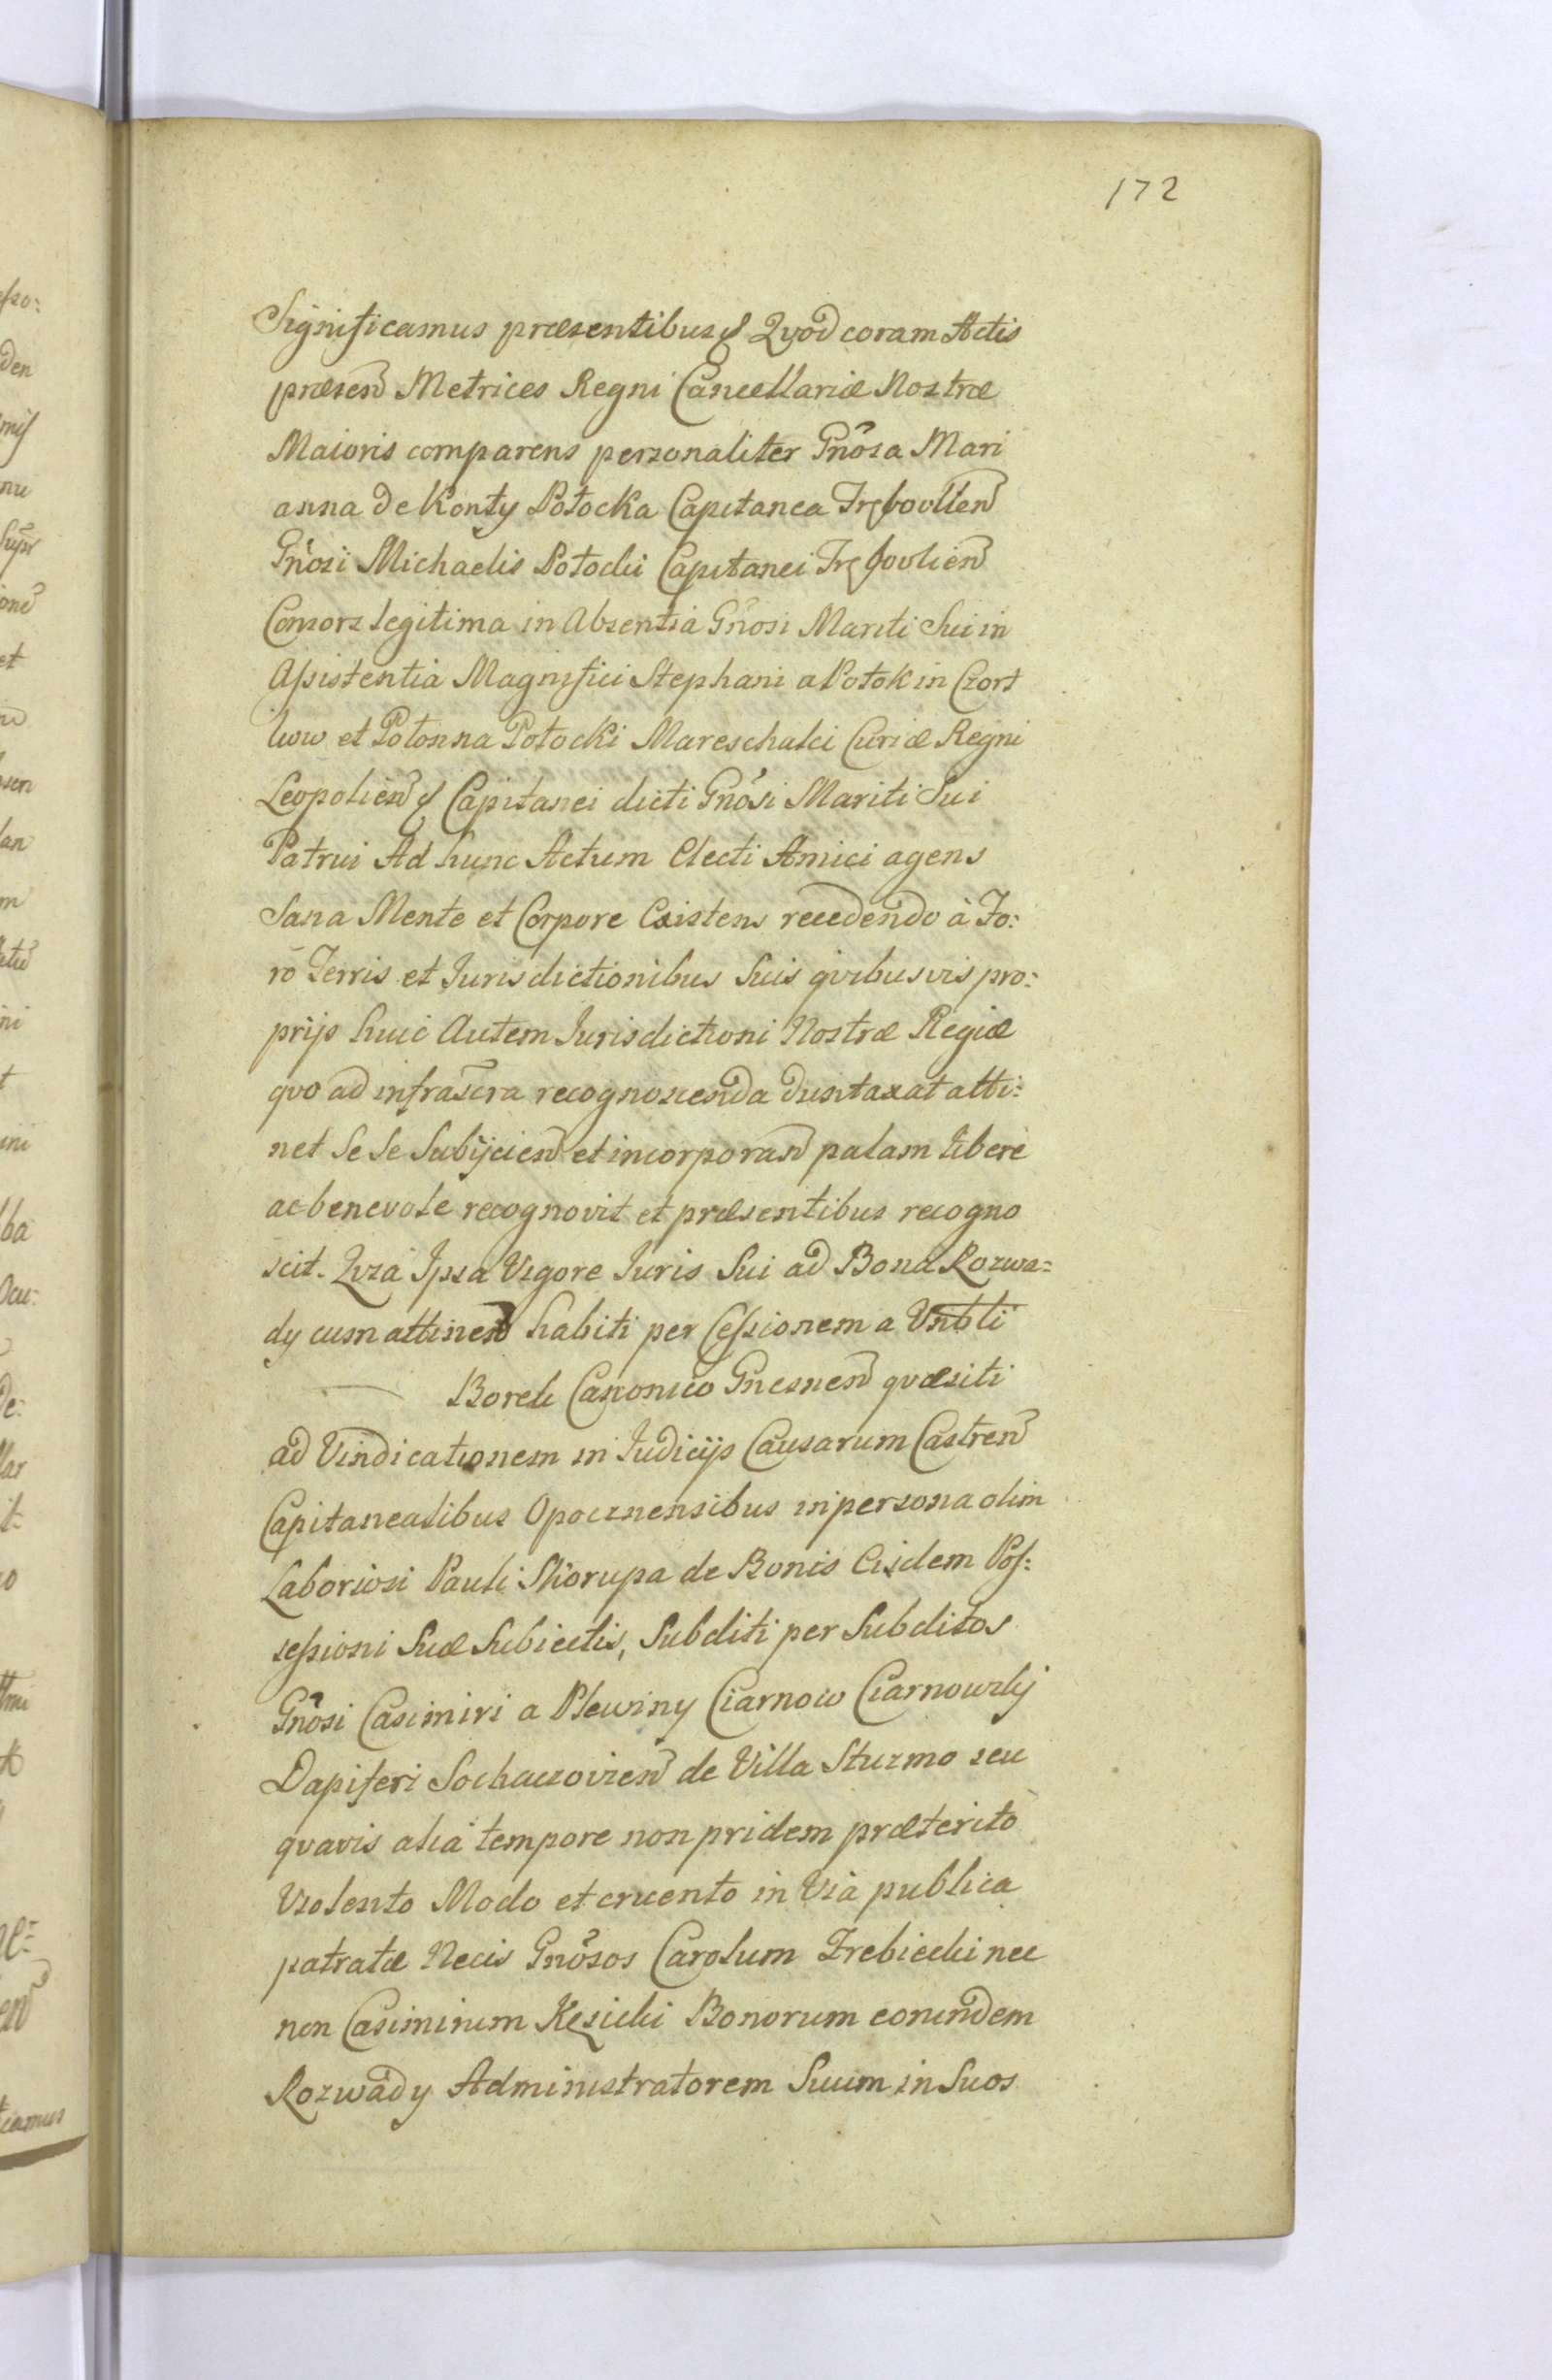 172
Significamus præsentibus & Qvod coram Actis
præsen Metrices Regni Cancellariæ Nostræ
Maioris comparens personaliter Gnosa Mari
anna de Konty Potocka Capitanea Trębovllen
Gnosi Michaelis Potocki Capitanei Trębovlien
Consors legitima in Absentia Gnosi Mariti Sui in
Assistentia Magnifici Stephani a Potok in Czort
kow et Potonna Potocki Mareschalci Curiæ Regni
Leopolien & Capitanei dicti Gnosi Mariti Sui
Patrui Ad hunc Actum Electi Amici agens
Sana Mente et Corpore Existens recedendo à Fo:
ro Terris et Jurisdictionibus Suis qvibusvis pro:
prijs huic Autem Jurisdictioni Nostræ Regiæ
qvo ad infrascra recognoscenda duntaxat atti:
net Se Se Subijcien et incorporan palam libere
ac benevole recognovit et præsentibus recogno
scit. Qvia Ipsa Vigore Juris Sui ad Bona Rozwa=
dy cum attinen habiti per Cessionem a Vnbli
Boreck Canonico Gnesnen qvæsiti
ad Vindicationem in Judicijs Causarum Castren
Capitanealibus Opocznensibus in persona olim
Laboriosi Pauli Skorupa de Bonis Eisdem Pos:
sessioni Suæ Subiectis, Subditi per Subditos
Gnosi Casimiri a Plewiny Czarnow Czarnowskj
Dapiferi Sochaczovien de Villa Sturmo seu
qvavis alia tempore non pridem præterito
Violento Modo et cruento in Via publica
patratæ Necis Gnosos Carolum Trebiecki nec
non Casimirum Kęsicki Bonorum eorundem
Rozwady Administratorem Suum in Suos